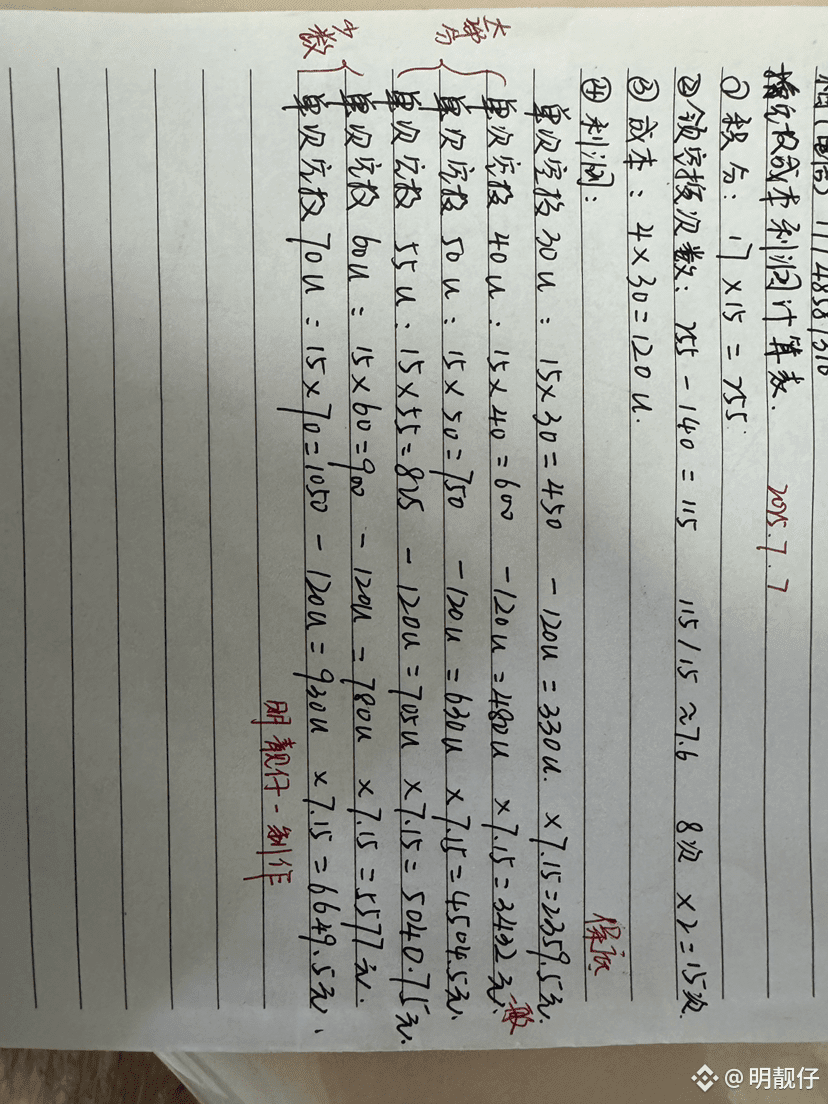 空投成本利润计算表. 2025.7.7
① 积分: 17×15=255
② 领空投次数: 255-140=115 115/15≈7.6 8次×2=15次.
③ 成本: 4×30=120u.
④ 利润:
保底
单次空投30u: 15×30=450 -120u=330u. ×7.15=2359.5元.
单次空投40u: 15×40=600 -120u=480u ×7.15=3432元. 一般
大部分
单次空投50u: 15×50=750 -120u=630u ×7.15=4504.5元.
单次空投55u: 15×55=825 -120u=705u ×7.15=5040.75元.
少数
单次空投60u: 15×60=900 -120u=780u ×7.15=5577元.
单次空投70u: 15×70=1050-120u=930u ×7.15=6649.5元.
明靓仔-制作
@明靓仔